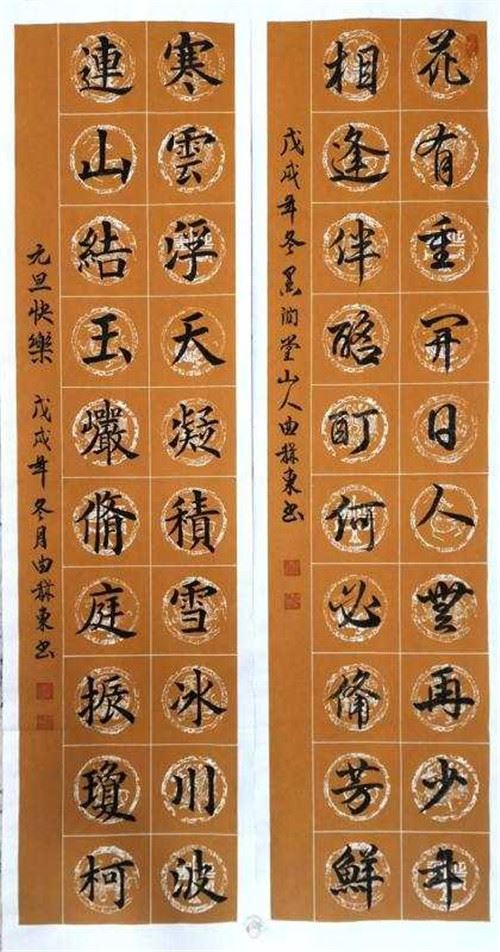 花有重開日人無再少年
相逢伴酩酊何必備芳鮮
戊戌年冬墨润堂山人由 東书
寒雲浮天凝積雪冰川波
連山結玉巖脩庭振瓊柯
元旦快樂 戊戌年冬月由 東书